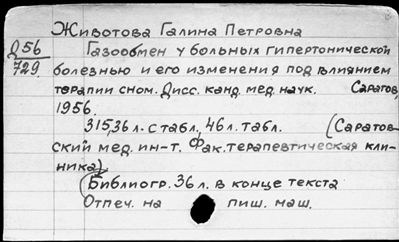 Животова Галина Петровна
Д56
729
Газообмен у больных гипертонической
болезнью и его изменения под влиянием
терапии сном. Дисс. канд. мед. наук. Саратов,
1956.
315,36 л. с табл., 46 л. табл. (Саратов-
ский мед. ин-т. Фак. терапевтическая кли-
ника)
(Библиогр. 36 л. в конце текста
Отпеч. на пиш. маш.